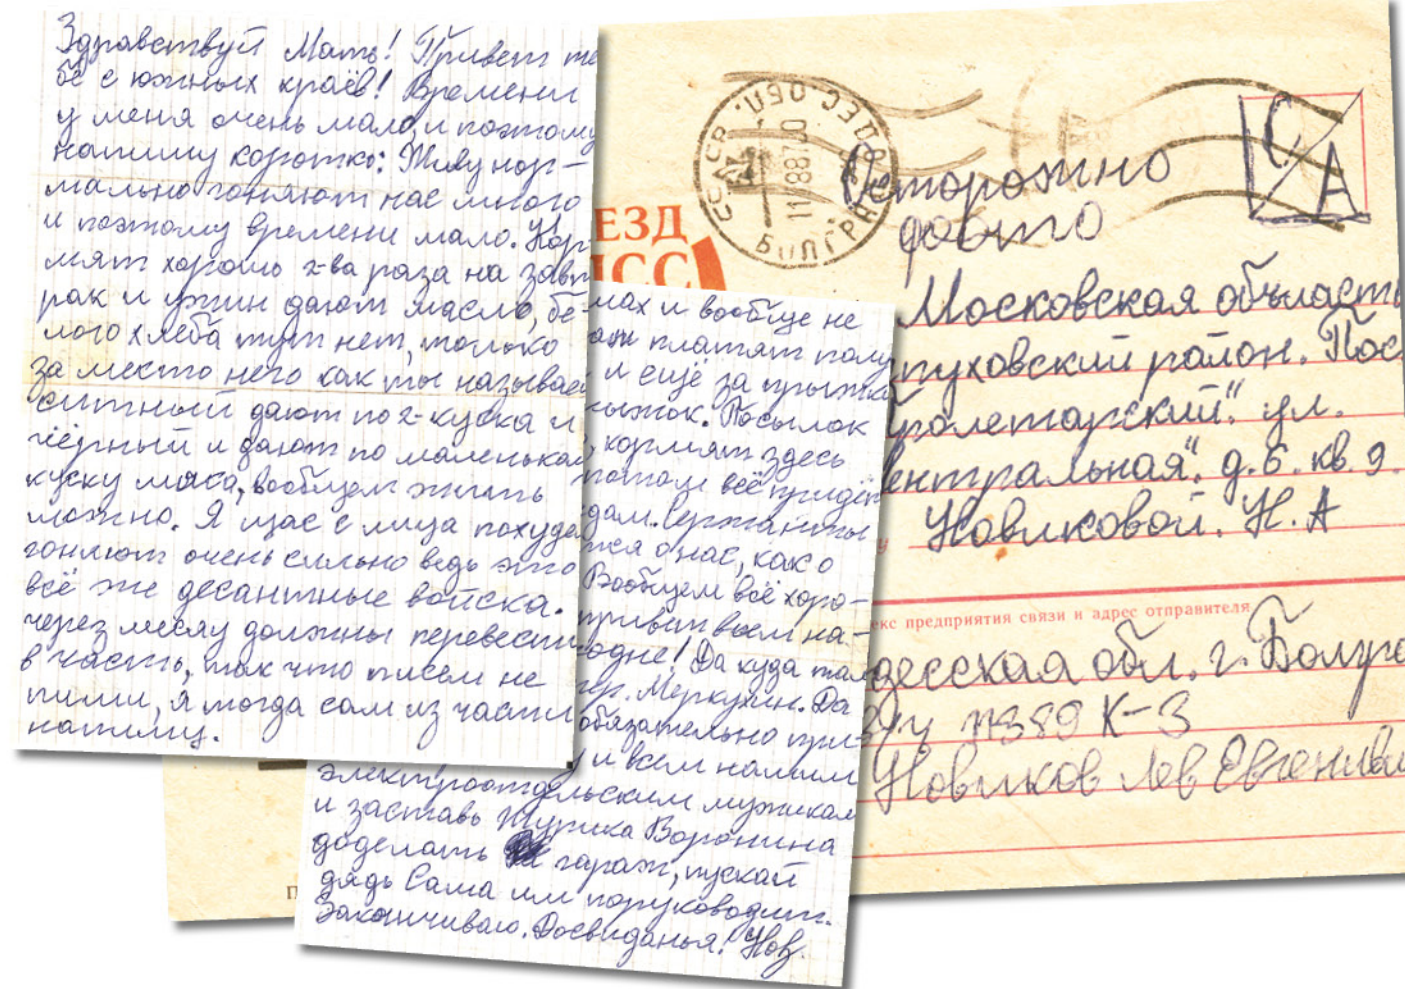 Здравствуй Мать! Привет те
бе с южных краёв! Времени
у меня очень мало, и поэтому
напишу коротко: Живу нор-
мально гоняют нас много
и поэтому времени мало. Кор-
мят хорошо 2-ва раза на завт
рак и ужин дают масло, бе-
лого хлеба тут нет, только
за место него как ты называеш
ситный дают по 2-куска и
чёрный и дают по маленькаму
куску мяса, вообщем жить
можно. Я щас с лица похудел
гоняют очень сильно ведь это
всё же десантные войска.
через месяц должны перевести
в часть, так что писем не
пиши, я тогда сам из части
напишу.
мах и вообще не
платят полу
и ещё за прыжки
Посылок
, кормят здесь
потом всё придёт
дам. Сержанты
тся о нас, как о
Вообщем всё хоро-
привет всем на-
одне! Да куда там
Меркухин. Да
обязательно при-
у и всем нашим
электроотдельским мужикам
и заставь Журика Воронина
доделать гараж, пускай
дядь Саша им поруководит.
Заканчиваю. Досвиданья! Нов.
ЕЗД
ПСС
СССР ОДЕС. ОБЛ.
БОЛГРАД
С/А
Осторожно
фото
Московская область
пуховский район. Пос
ролетарский". ул.
ентральная". д. 6. кв. 9.
у Новиковой. Н. А
екс предприятия связи и адрес отправителя
десская обл. г. Болгр
в/ч 11389 К-3
Новиков Лев Евгениев
П